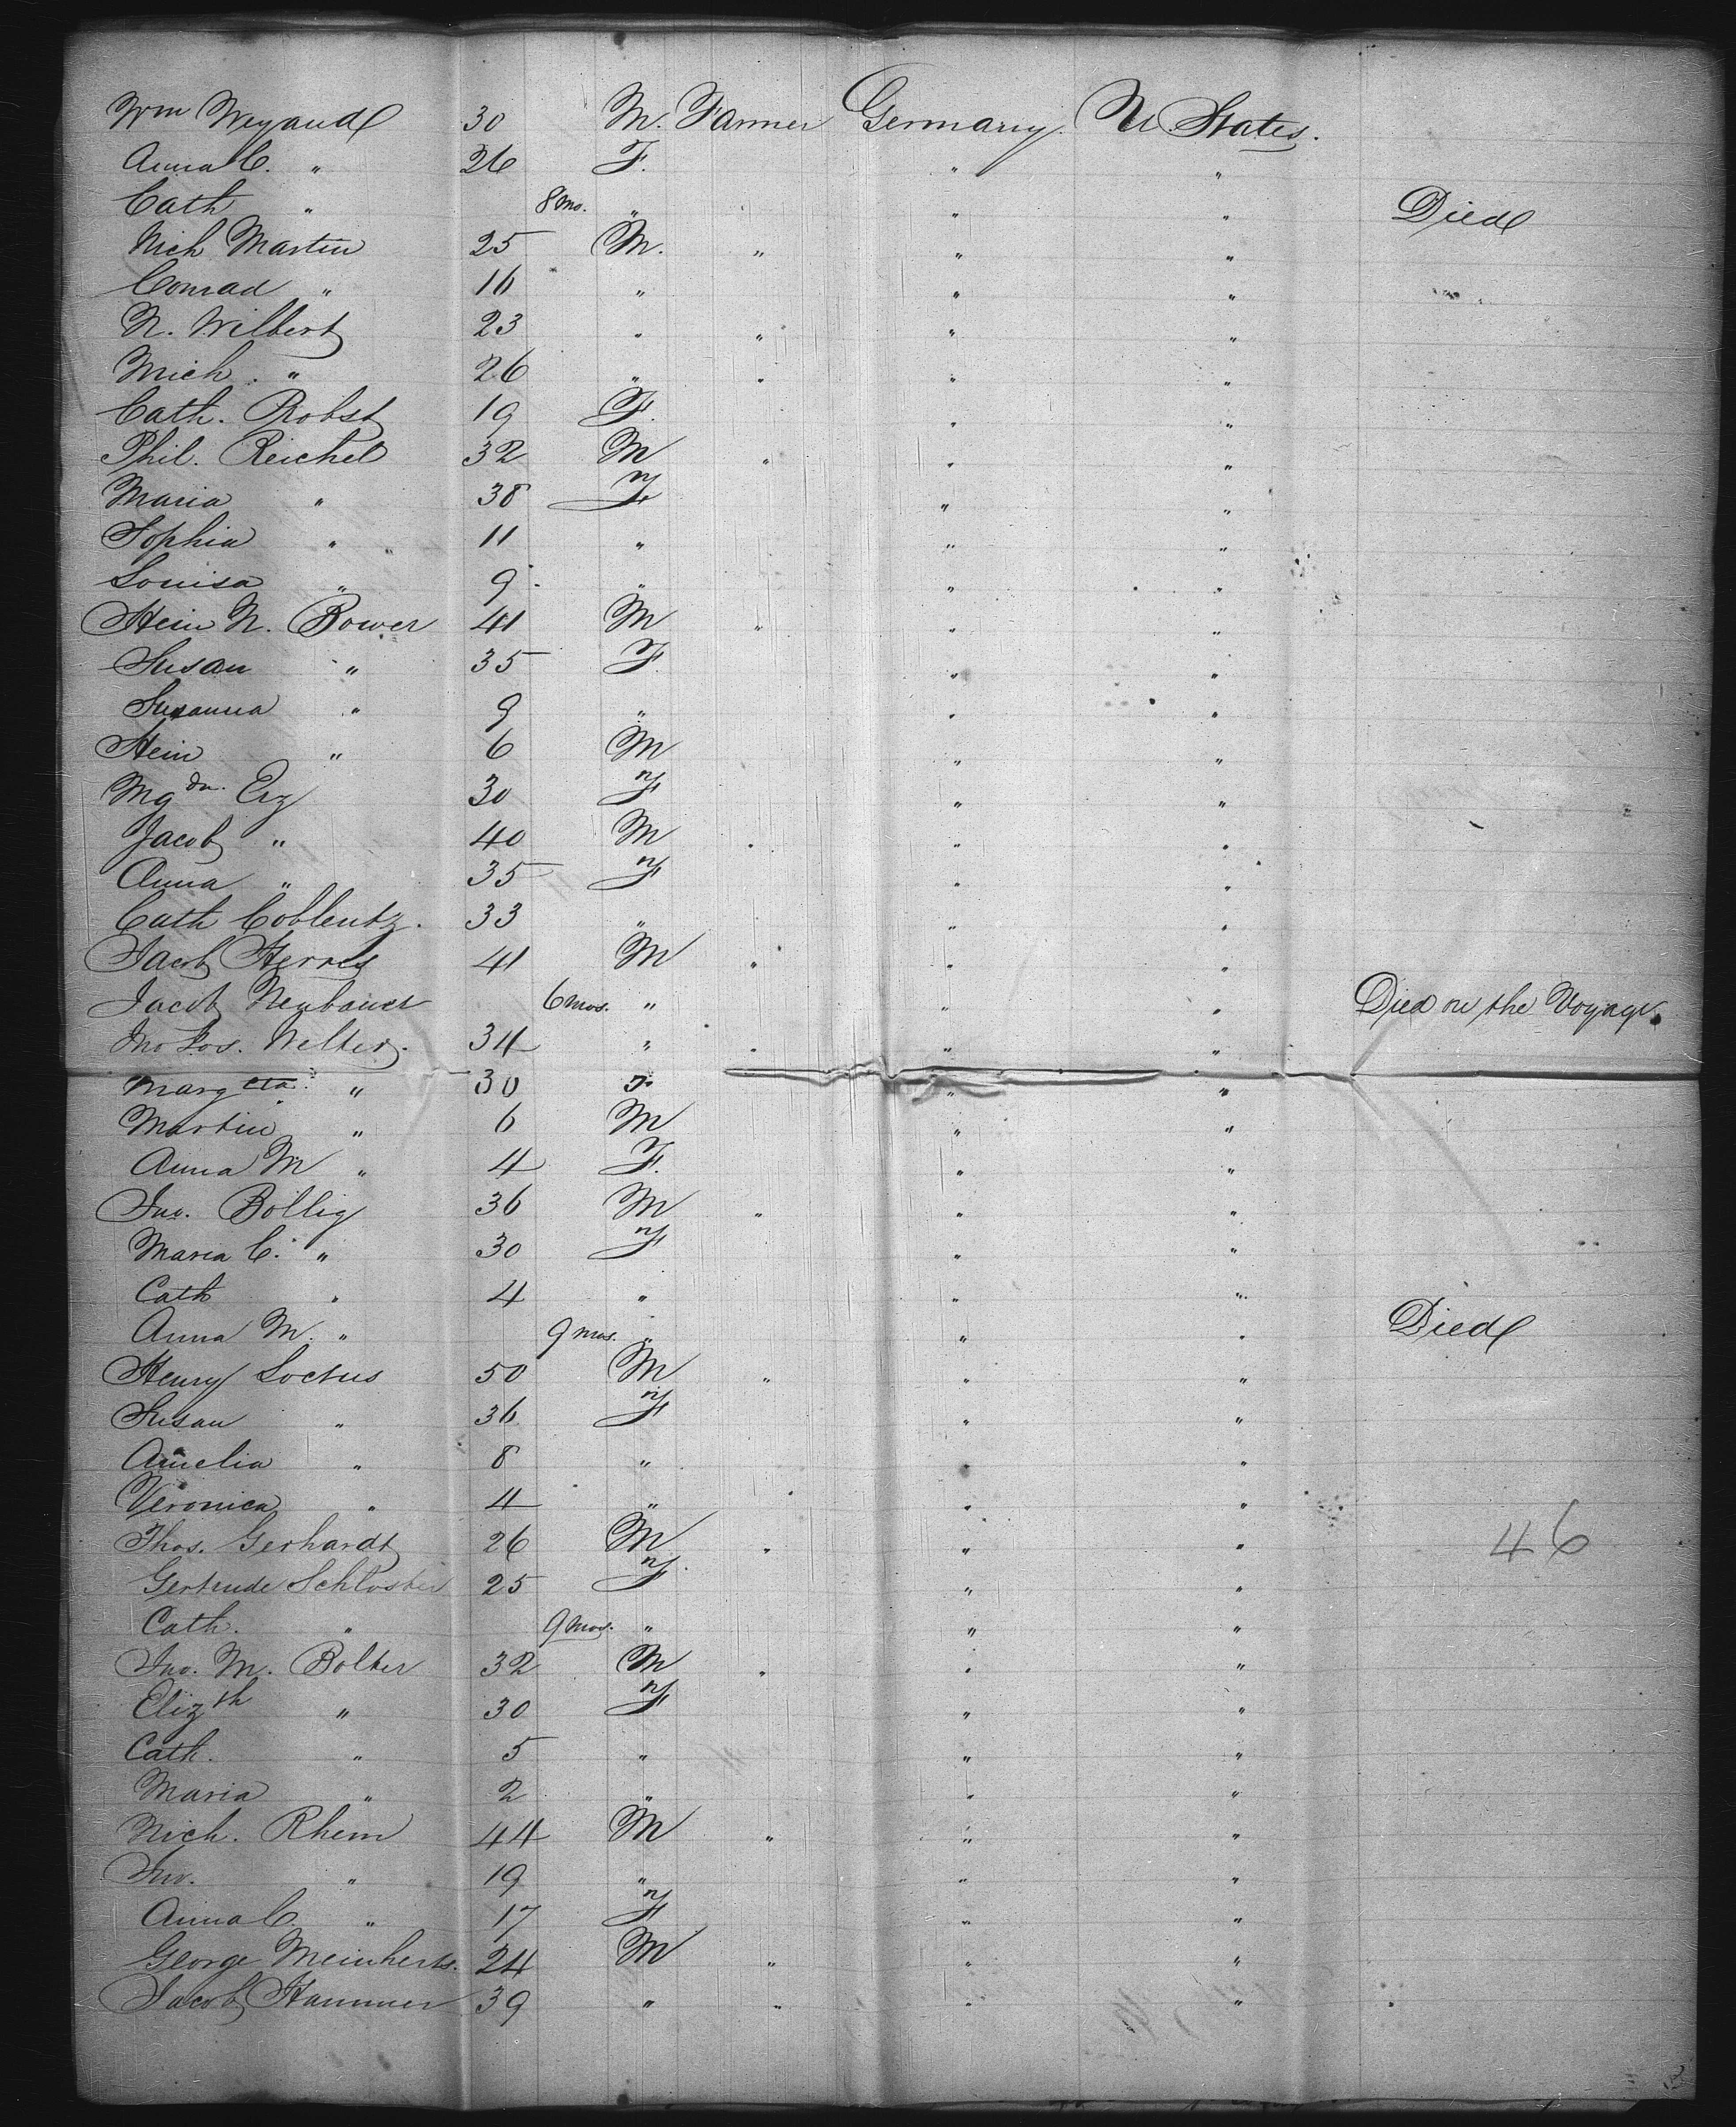 Wm Weyand 30 M. Farmer Germany. U. States.
Anna C. " 26 F. " "
Cath " 8 mo. " " " Died
Nich Martin 25 M. " " "
Conrad " 16 " " "
N. Wilbert 23 " " " "
Mich. " 26 " " " "
Cath. Probst 19 F. " "
Phil. Reichel 32 M " " "
Maria " 38 F " "
Sophia " 11 " " "
Louisa " 9 " " "
Hein N. Bower 41 M " " "
Susan " 35 F " "
Susanna " 9 " " "
Hein " 6 M " "
Mgdn. Erz 30 F " "
Jacob " 40 M " " "
Anna " 35 F " "
Cath Coblentz. 33 " " "
Jacob Herres 41 M " " "
Jacob Neubauer 6 mos. " " " Died on the Voyage.
Jno Jos. Welter. 34 " " " "
Margeta. " 30 F " "
Martin " 6 M " "
Anna M " 4 F. " "
Jno. Bollig 36 M " " "
Maria C. " 30 F " "
Cath " 4 " " "
Anna M. " 9 mos. " " " Died
Henry Loctus 50 M " " "
Susan " 36 F " "
Amelia " 8 " " "
Veronica " 4 " " "
Thos. Gerhardt 26 M " " " 46
Gertrude Schloster 25 F " "
Cath. " 9 mos. " " "
Jno. M. Bolter 32 M " " "
Elizth " 30 F " "
Cath. " 5 " " "
Maria " 2 " " "
Nich. Rhein 44 M " " "
Jno. " 19 " " "
Anna C " 17 F " "
George Meinherts. 24 M " " "
Jacob Hammer 39 " " " "